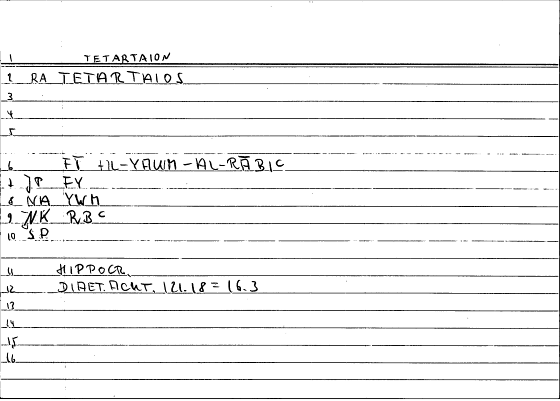 1 TETARTAION
2 RA TETARTAIOS
3
4
5
6 FĪ AL-YAWM-AL-RĀBIC
7 JP FY
8 NA YWM
9 NK RBC
10 SP
11 HIPPOCR.
12 DIAET.ACUT. 121.18 = 16.3
13
14
15
16